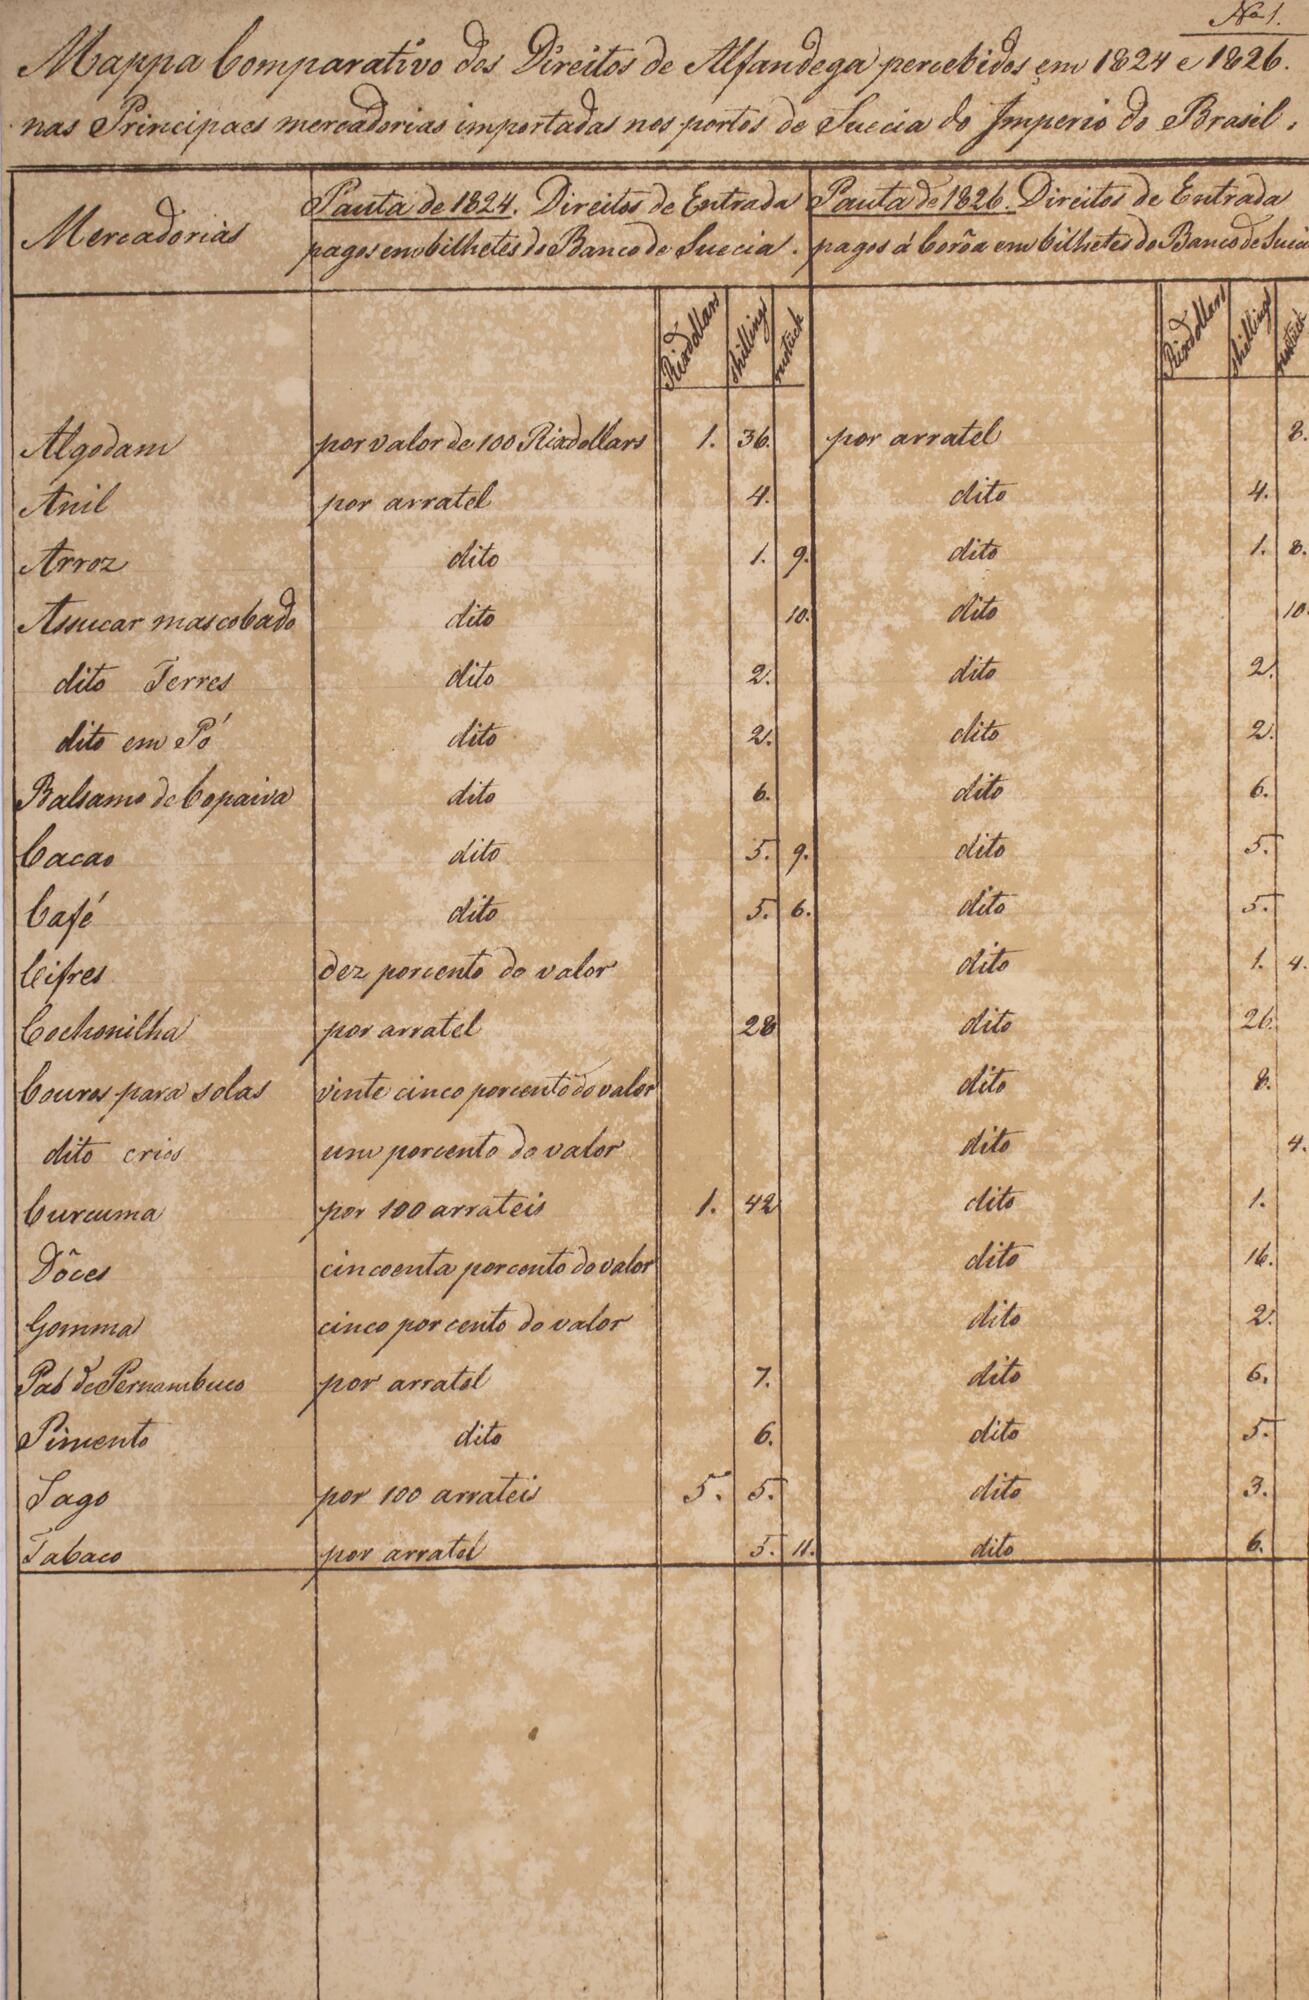 No 1.
Mappa Comparativo dos Direitos de Alfandega percebidos em 1824 e 1826.
nas Principaes mercadorias importadas nos portos de Suecia do Imperio do Brasil.
Mercadorias Pauta de 1824. Direitos de Entrada Pauta de 1826. Direitos de Entrada
pagos em bilhetes do Banco de Suecia. pagos á Corôa em bilhetes do Banco de Suecia
Rixdollars shillings rustick Rixdollars shillings rustick
Algodam por valor de 100 Rixdollars 1. 36. por arratel 8.
Anil por arratel 4. dito 4.
Arroz dito 1. 9. dito 1. 8.
Assucar mascobado dito 10. dito 10.
dito Terres dito 2. dito 2.
dito em Pó dito 2. dito 2.
Balsamo de Copaiva dito 6. dito 6.
Cacao dito 5. 9. dito 5.
Café dito 5. 6. dito 5.
Cifres dez por cento do valor dito 1. 4.
Cochonilha por arratel 28 dito 26.
Couros para solas vinte cinco por cento do valor dito 8.
dito crios um por cento do valor dito 4.
Curcuma por 100 arrateis 1. 42 dito 1.
Dôces cincoenta por cento do valor dito 16.
Gomma cinco por cento do valor dito 2.
Páo de Pernambuco por arratel 7. dito 6.
Pimento dito 6. dito 5.
Sago por 100 arrateis 5. 5. dito 3.
Tabaco por arratel 5. 11. dito 6.